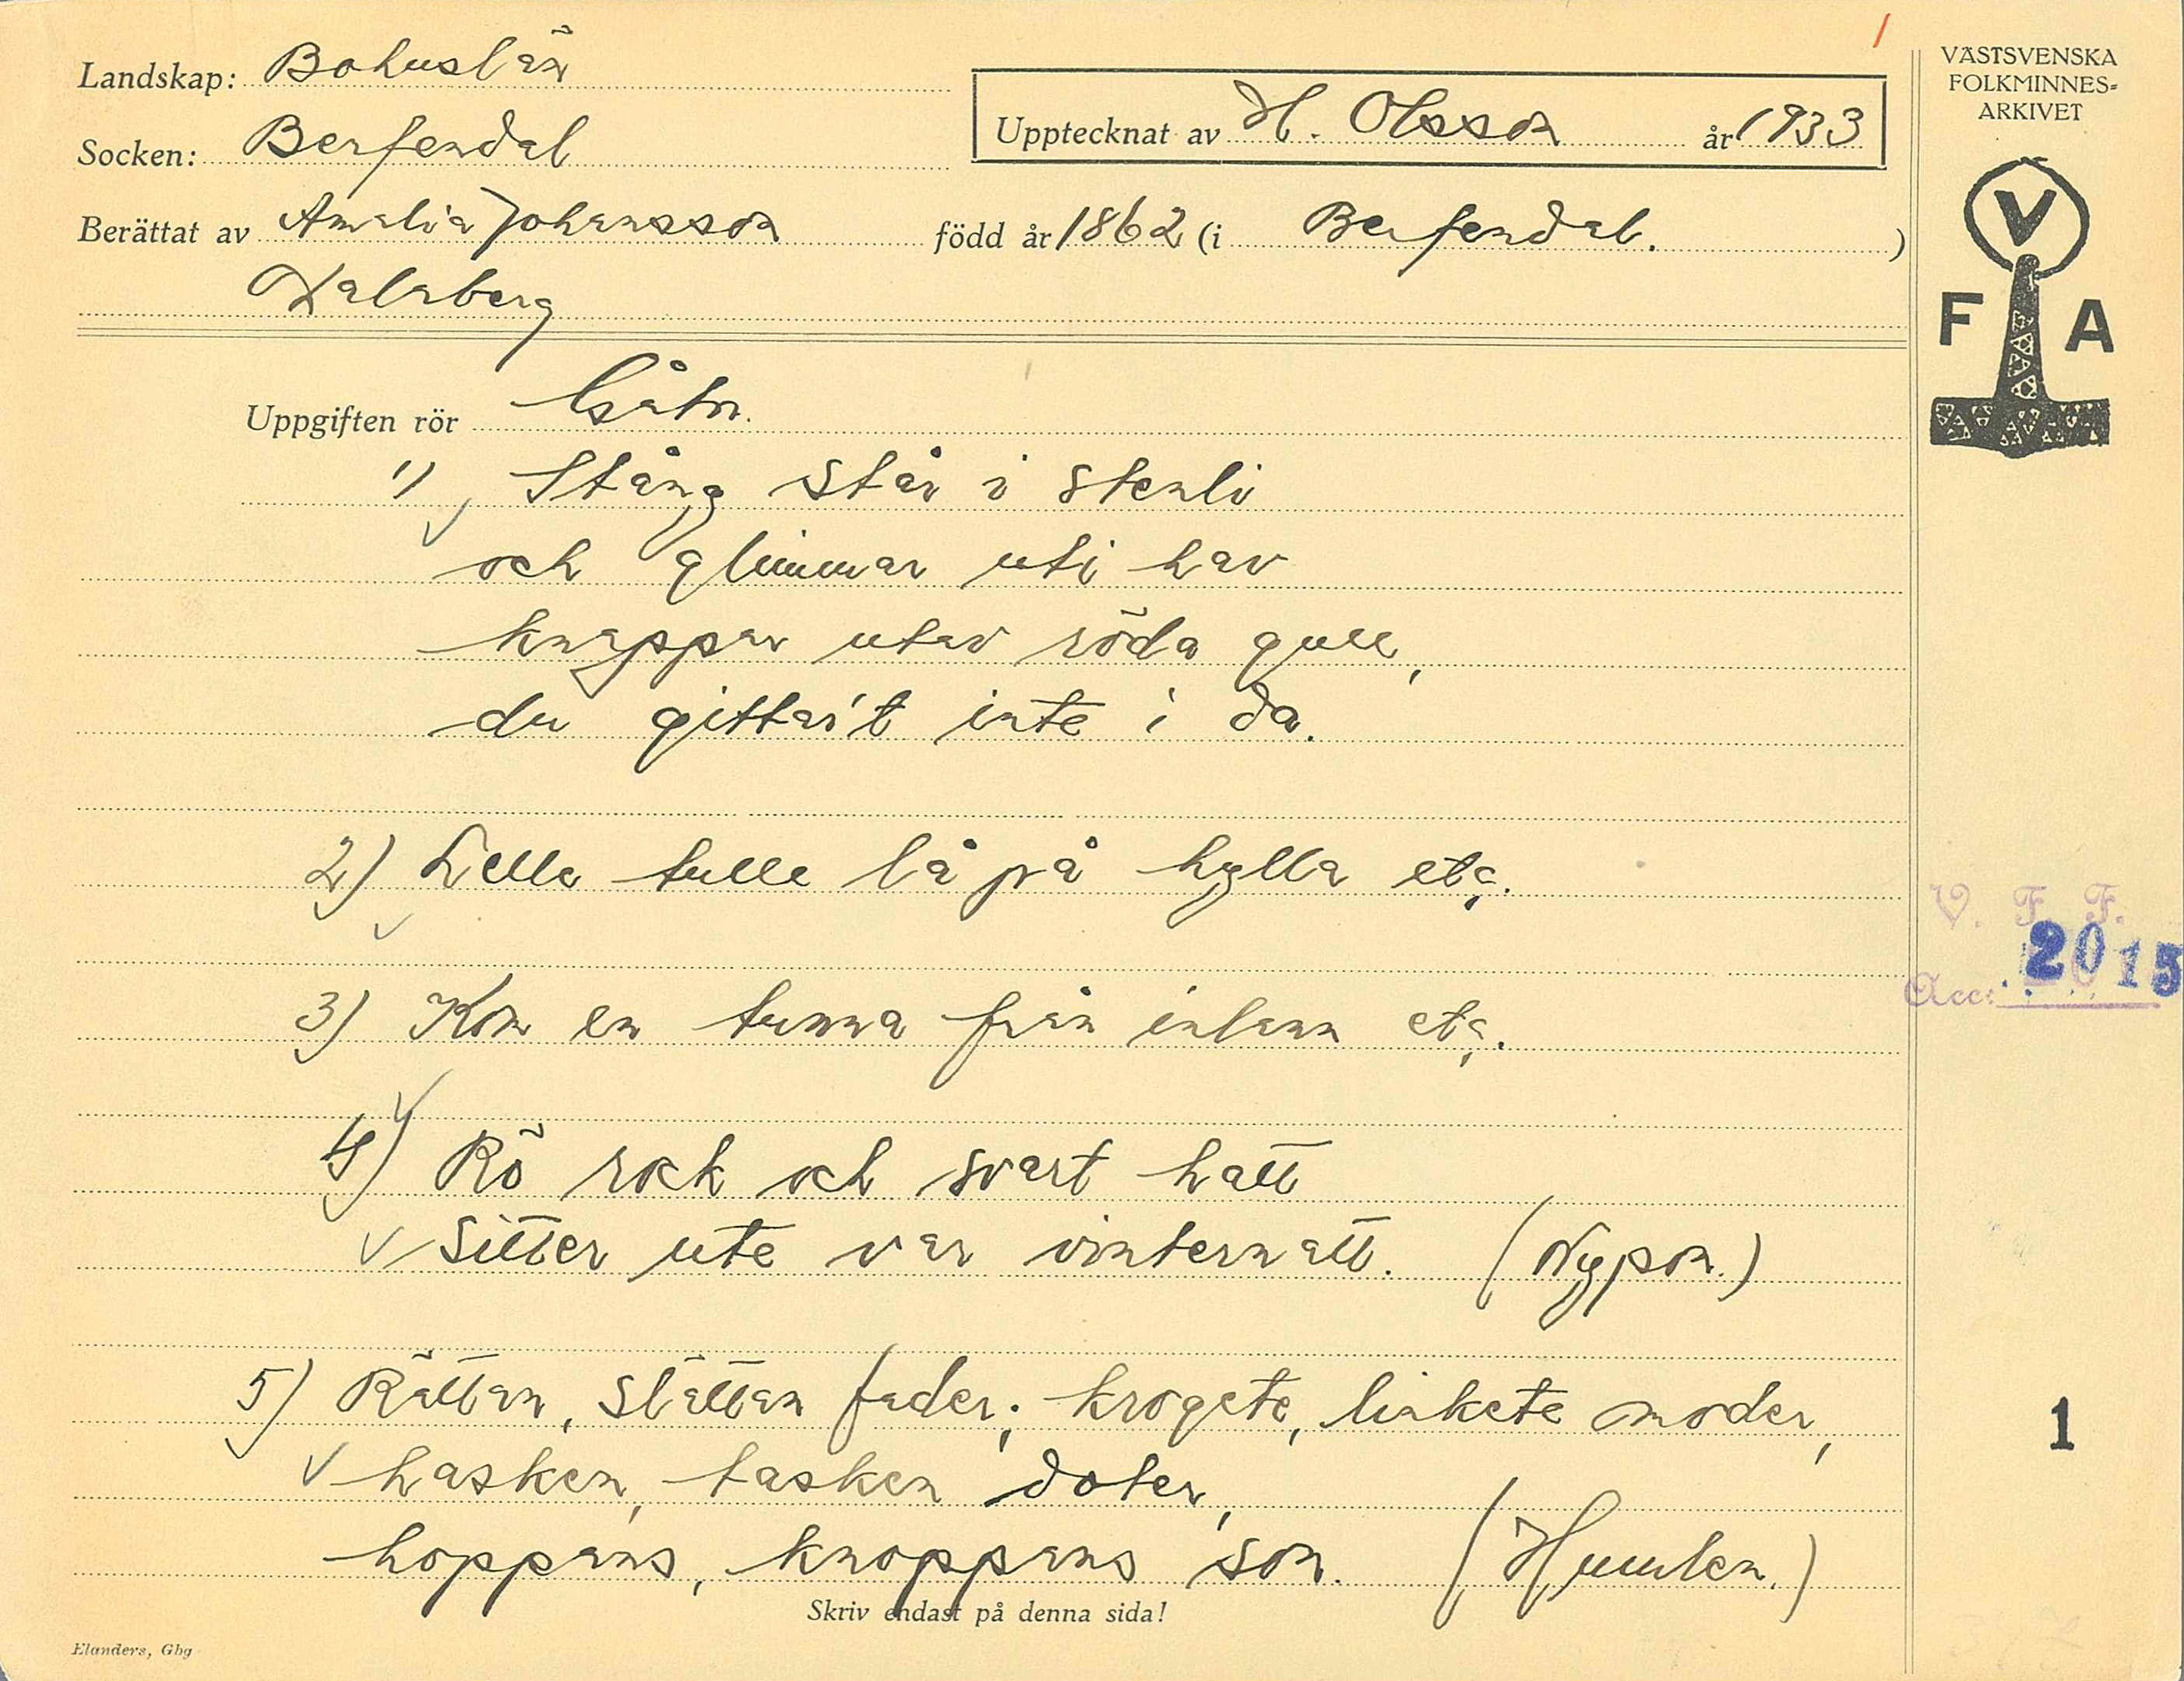 Landskap: Bohuslän
Socken: Berfendal
Upptecknat av H. Olsson år 1933
Berättat av Amalia Johansson född år 1862 (i Berfendal.)
Dalaberg
VÄSTSVENSKA
FOLKMINNES-
ARKIVET
V
F A
Uppgiften rör Gåtor.
1) Stång står i stenli
och glimmar uti hav
knappar utav röda gull,
du gittar't inte i da.
2) Lelle tulle lå på hylla etc.
3) Kom en tunna från inlann etc.
4) Rö rock och svart hatt
Sitter ute var vinternatt. (Nypon.)
5) Rättan, slättan fader; krogete, linkete moder,
hasken, tasken doter,
hoppans, knoppans son. (Humlen.)
Skriv endast på denna sida!
Elanders, Gbg
V. F. F.
Acc. 2015
1